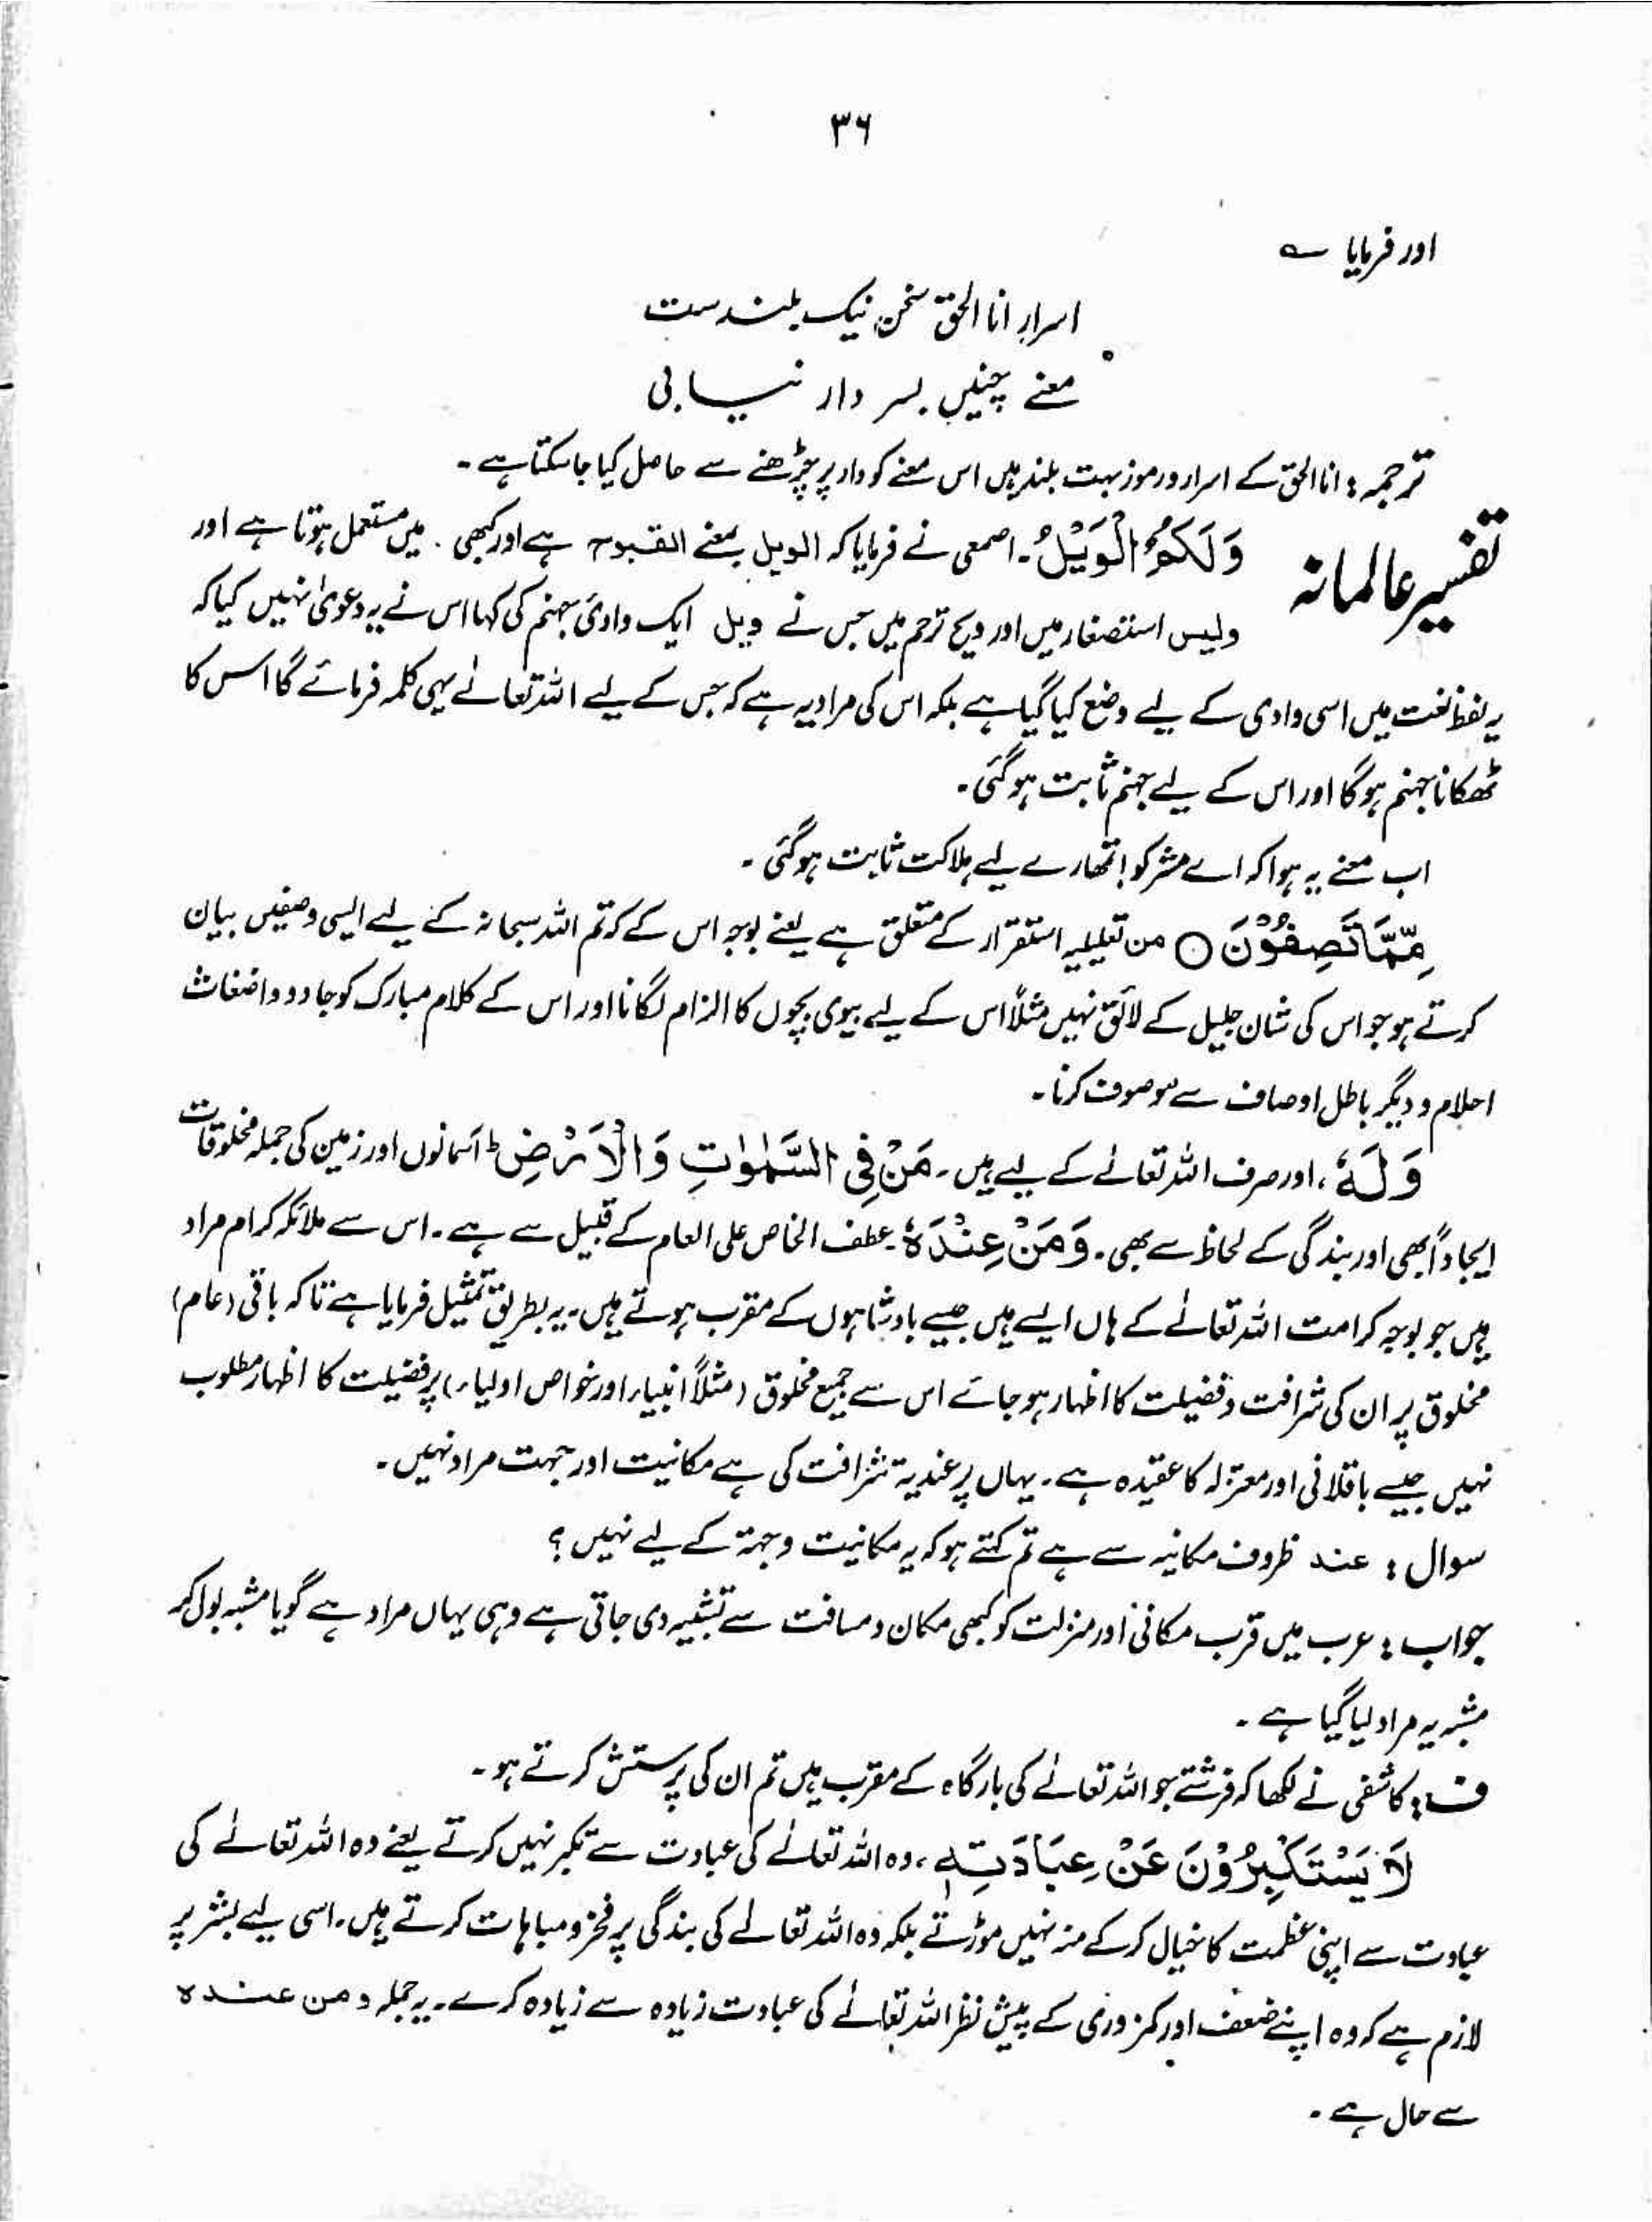 ۳۶
اور فرمایا ؎
اسرارِ انا الحق سخن نیک بلندست
معنے چنیں بسر دار نیابی
ترجمہ : انا الحق کے اسرار و رموز بہت بلند ہیں اس معنے کو دار پر چڑھنے سے حاصل کیا جا سکتا ہے۔
تفسیر عالمانہ
وَلَكُمُ الْوَيْلُ۔ اصمعی نے فرمایا کہ الویل بمعنے القبوح ہے اور کبھی ۔ میں مستعمل ہوتا ہے اور
ولیس استصغار میں اور ویح ترحم میں جس نے ویل ایک وادیٔ جہنم کی کہا اس نے یہ دعویٰ نہیں کیا کہ
یہ لفظ لغت میں اسی وادی کے لیے وضع کیا گیا ہے بلکہ اس کی مراد یہ ہے کہ جس کے لیے اللہ تعالےٰ یہی کلمہ فرمائے گا اسس کا
ٹھکانا جہنم ہو گا اور اس کے لیے جہنم ثابت ہو گئی۔
اب معنے یہ ہوا کہ اے مشرکو! تمھارے لیے ہلاکت ثابت ہو گئی۔
مِمَّا تَصِفُوْنَ ○ من تعلیلیہ استقرار کے متعلق ہے یعنے بوجہ اس کے کہ تم اللہ سبحانہ کے لیے ایسی وصفیں بیان
کرتے ہو جو اس کی شان جلیل کے لائق نہیں مثلاً اس کے لیے بیوی بچوں کا الزام لگانا اور اس کے کلام مبارک کو جادو و اضغاث
احلام و دیگر باطل اوصاف سے موصوف کرنا۔
وَلَهٗ، اور صرف اللہ تعالےٰ کے لیے ہیں۔ مَنْ فِی السَّمٰوٰتِ وَالْاَرْضِ ؕ آسمانوں اور زمین کی جملہ مخلوقات
ایجاداً بھی اور بندگی کے لحاظ سے بھی۔ وَمَنْ عِنْدَهٗ۔ عطف الخاص علی العام کے قبیل سے ہے۔ اس سے ملائکہ کرام مراد
ہیں جو بوجہ کرامت اللہ تعالےٰ کے ہاں ایسے ہیں جیسے بادشاہوں کے مقرب ہوتے ہیں۔ یہ بطریق تمثیل فرمایا ہے تاکہ باقی (عام)
مخلوق پر ان کی شرافت و فضیلت کا اظہار ہو جائے اس سے جمیع مخلوق (مثلاً انبیاء اور خواص اولیاء) پر فضیلت کا اظہار مطلوب
نہیں جیسے باقلانی اور معتزلہ کا عقیدہ ہے۔ یہاں پر عندیۃ شرافت کی ہے مکانیت اور جہت مراد نہیں۔
سوال : عند ظروف مکانیہ سے ہے تم کہتے ہو کہ یہ مکانیت و جہۃ کے لیے نہیں ؟
جواب : عرب میں قرب مکانی اور منزلت کو کبھی مکان و مسافت سے تشبیہ دی جاتی ہے وہی یہاں مراد ہے گویا مشبہ بول کر
مشبہ بہ مراد لیا گیا ہے۔
ف : کاشفی نے لکھا کہ فرشتے جو اللہ تعالےٰ کی بارگاہ کے مقرب ہیں تم ان کی پرستش کرتے ہو۔
لَا يَسْتَكْبِرُوْنَ عَنْ عِبَادَتِهٖ، وہ اللہ تعالےٰ کی عبادت سے تکبر نہیں کرتے یعنے وہ اللہ تعالےٰ کی
عبادت سے اپنی عظمت کا خیال کر کے منہ نہیں موڑتے بلکہ وہ اللہ تعالےٰ کی بندگی پر فخر و مباہات کرتے ہیں۔ اسی لیے بشر پر
لازم ہے کہ وہ اپنے ضعف اور کمزوری کے پیش نظر اللہ تعالےٰ کی عبادت زیادہ سے زیادہ کرے۔ یہ جملہ و من عندہ
سے حال ہے۔